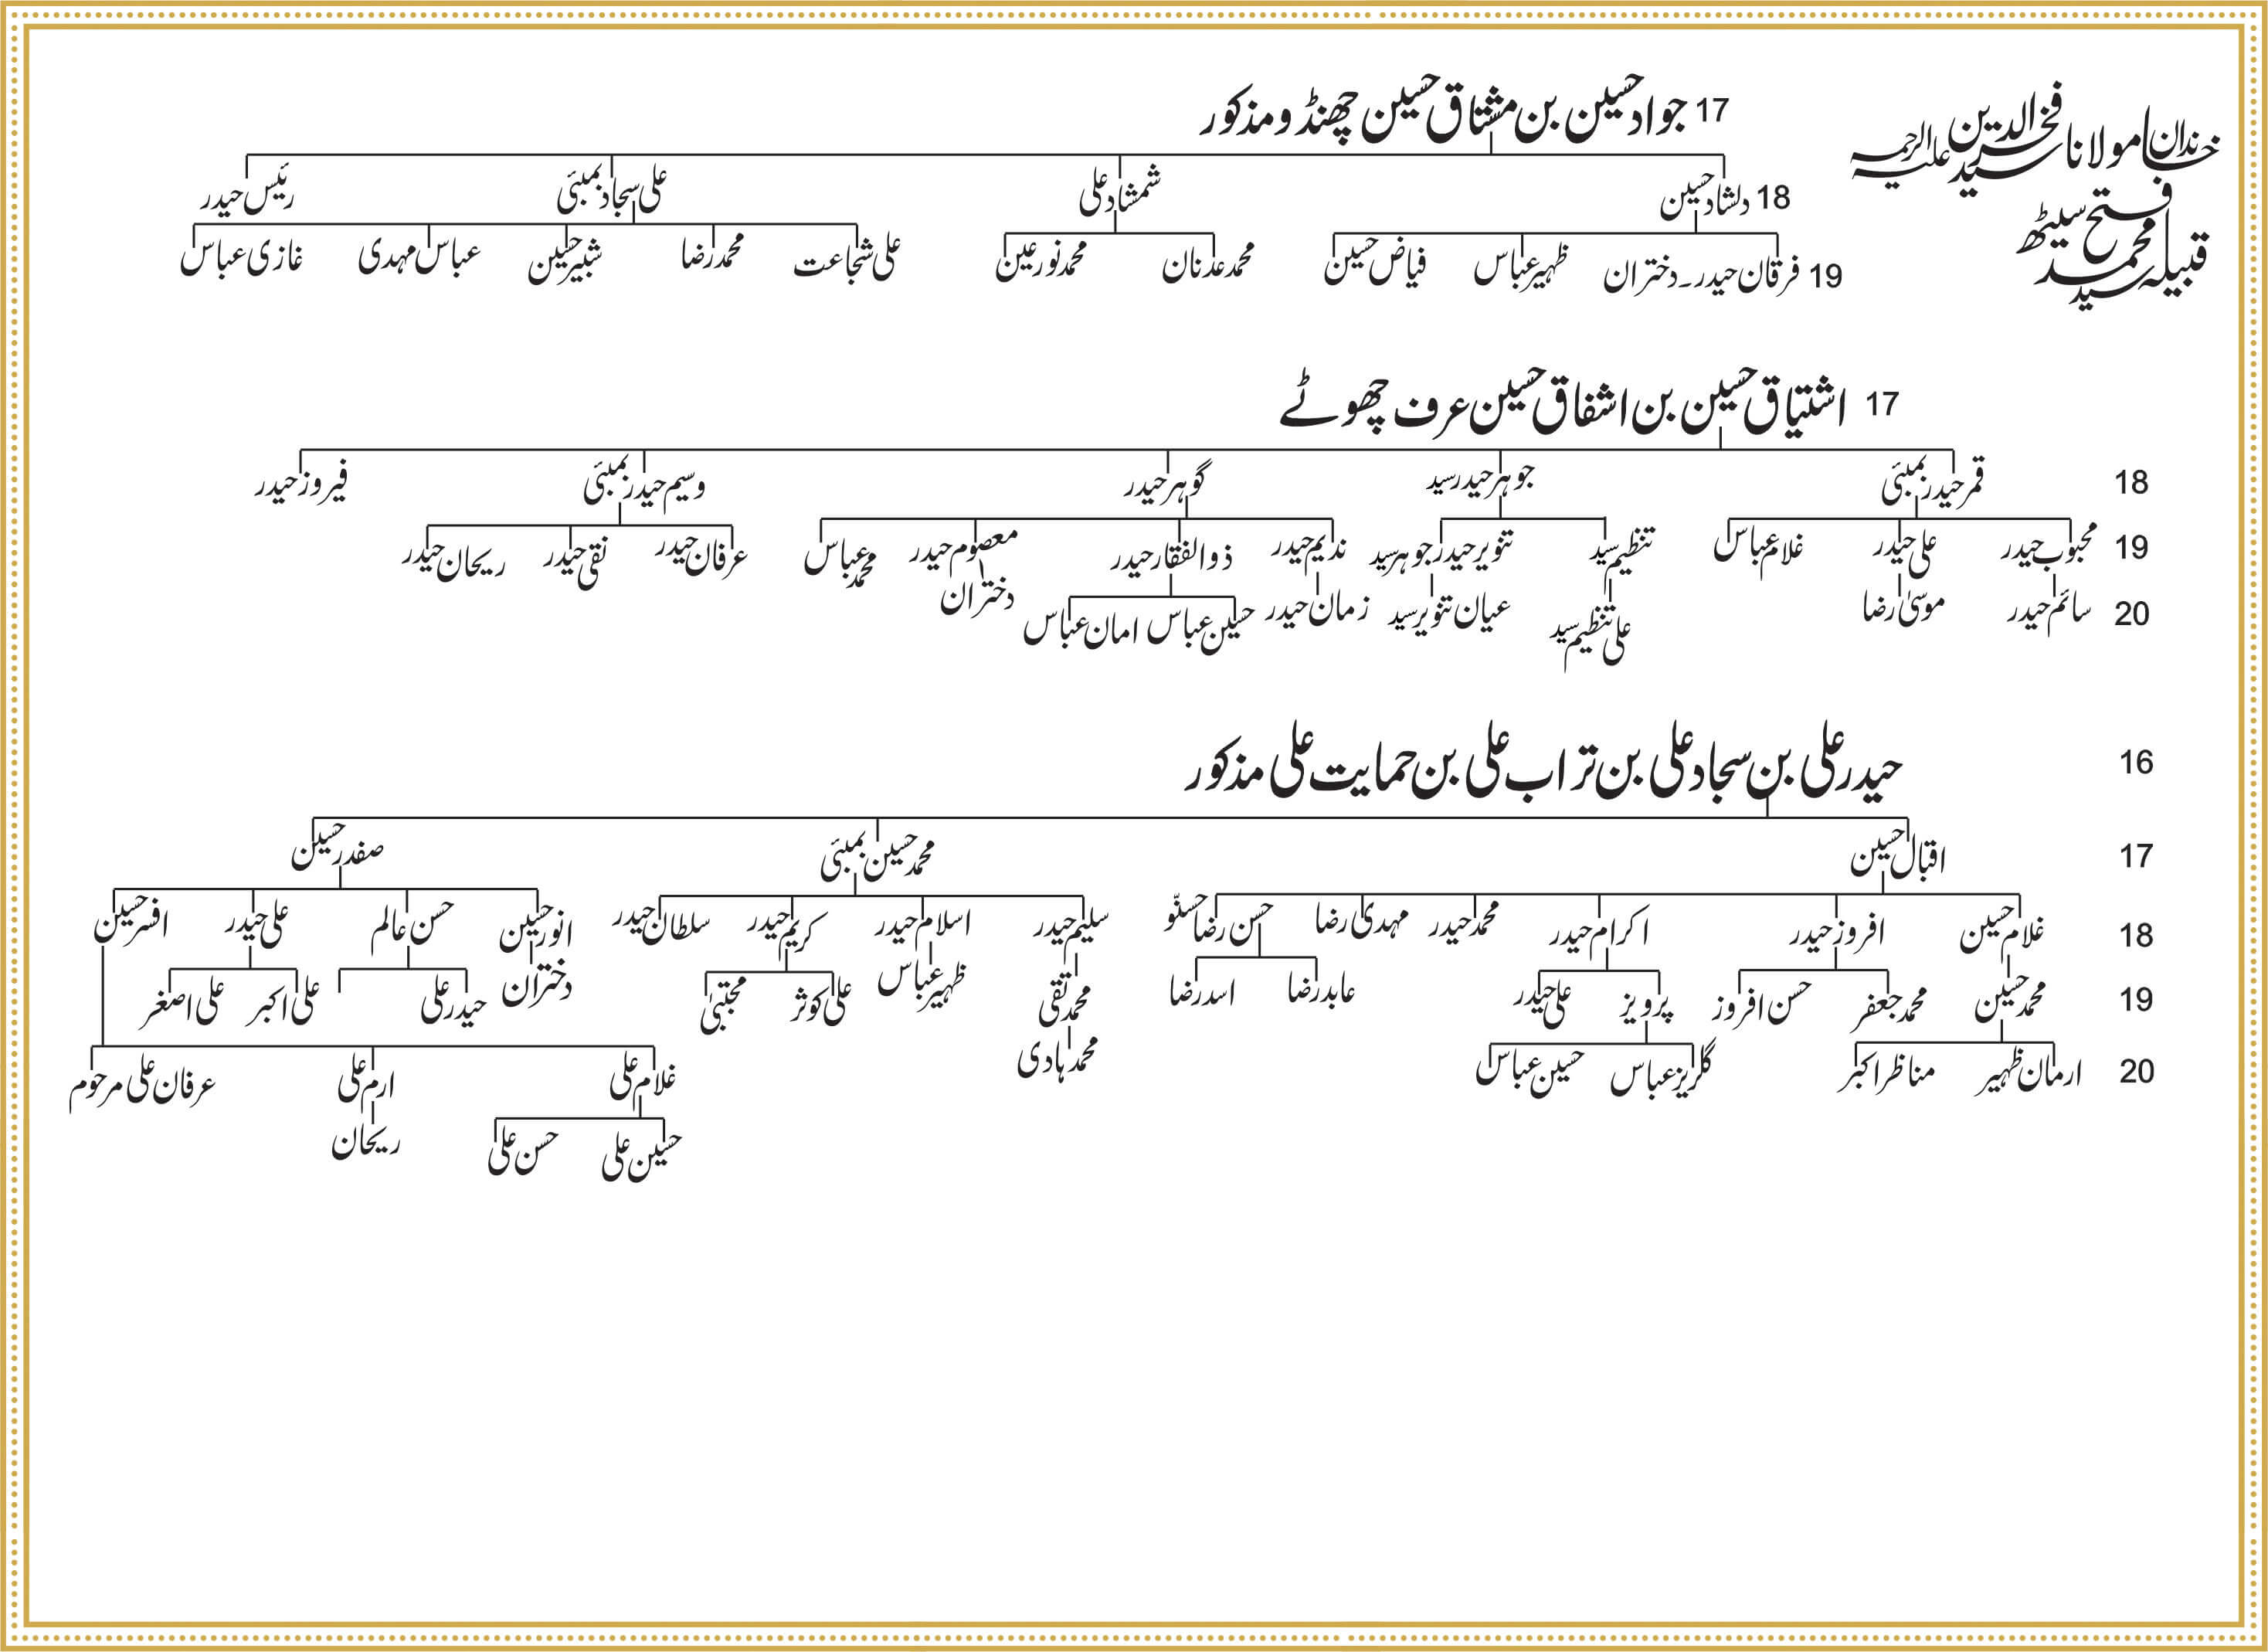 خاندان مولانا سید فخرالدین علیہ الرحمہ
قبیلہ سید محمد فتح سیٹھ
17 جواد حسین بن مشتاق حسین چھنڈو مذکور
18 دلشاد حسین شمشاد علی علی سجاد بمبئی رئیس حیدر
19 فرقان حیدر۔دختران ظہیر عباس فیاض حسین محمد عدنان محمد نور عین علی شجاعت محمد رضا شبیر حسین عباس مہدی غازی عباس
17 اشتیاق حسین بن اشفاق حسین عرف چھوٹے
18 قمر حیدر بمبئی جوہر حیدر سید گوہر حیدر وسیم حیدر بمبئی فیروز حیدر
19 محبوب حیدر علی حیدر غلام عباس تنظیم سید تنویر حیدر جوہر سید ندیم حیدر ذوالفقار حیدر معصوم حیدر محمد عباس عرفان حیدر نقی حیدر ریحان حیدر
20 سائم حیدر موسیٰ رضا علی تنظیم سید عیان تنویر سید زمان حیدر حسین عباس امان عباس دختران
16 حیدر علی بن سجاد علی بن تراب علی بن حمایت علی مذکور
17 اقبال حسین محمد حسین بمبئی صفدر حسین
18 غلام حسین افروز حیدر اکرام حیدر محمد حیدر مہدی رضا حسن رضا حسنّو سلیم حیدر اسلام حیدر کریم حیدر سلطان حیدر انور حسین حسن عالم علی حیدر افسر حسین
19 محمد حسین محمد جعفر حسن افروز پرویز علی حیدر عابد رضا اسد رضا محمد تقی ظہیر عباس علی کوثر مجتبیٰ دختران حیدر علی علی اکبر علی اصغر
20 ارمان ظہیر مناظر اکبر گلریز عباس حسین عباس محمد ہادی غلام علی ارم علی عرفان علی مرحوم
حسین علی حسن علی ریحان